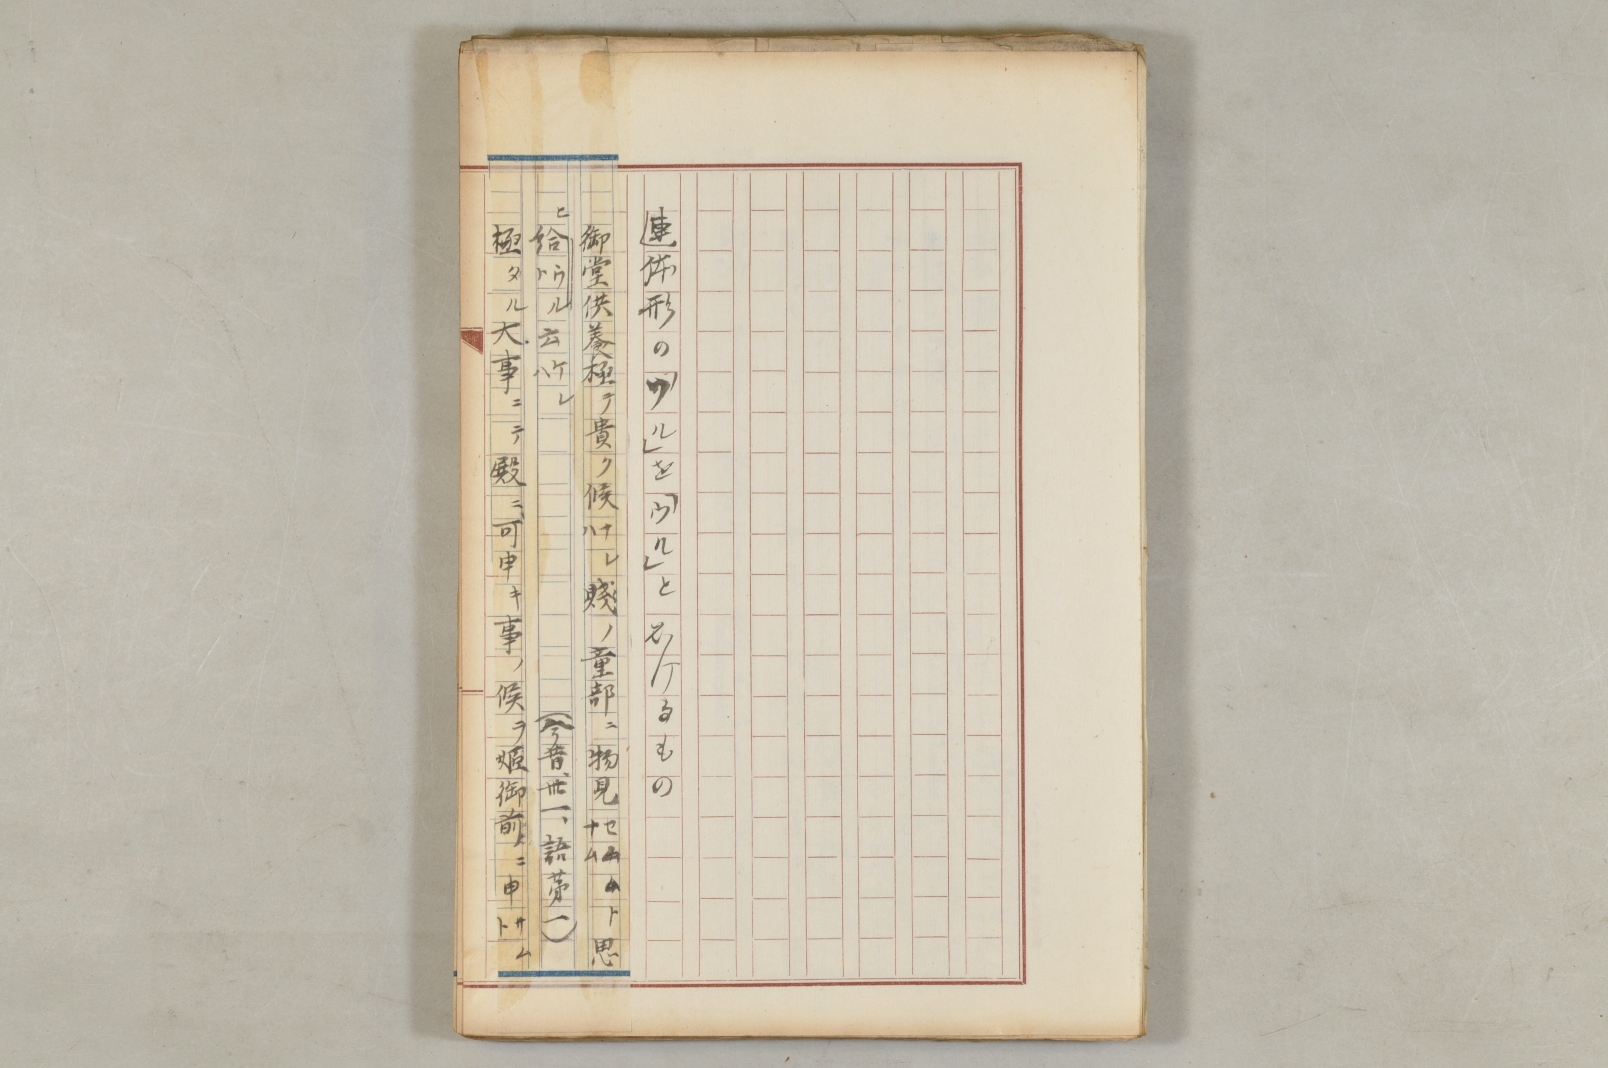 連体形の「フル」を「ウル」と引けるもの
御堂供養極テ貴ク候ナレハ賤ノ童部ニ物見セムナムト思
ヒ給ウルト云ケレハ(今昔、卅一、語第一)
極タル大事ニテ殿ニ可申キ事ノ候ヲ姫御前ニ申サムト